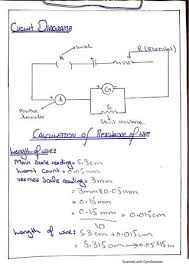 Circuit Diagrams
R (Rheostat)
A
G
Shunt resistance
Positive
Ammeter
Calculation of Resistance of wire
Length of wire:
Main scale reading = 5.3cm
least count = 0.05
vernier scale reading = 3mm
= 3mm×0.05mm
= 0.15mm
= 0.15mm = 0.015cm
10
Length of wire = 5.3cm + 0.015cm
Scanned with CamScanner